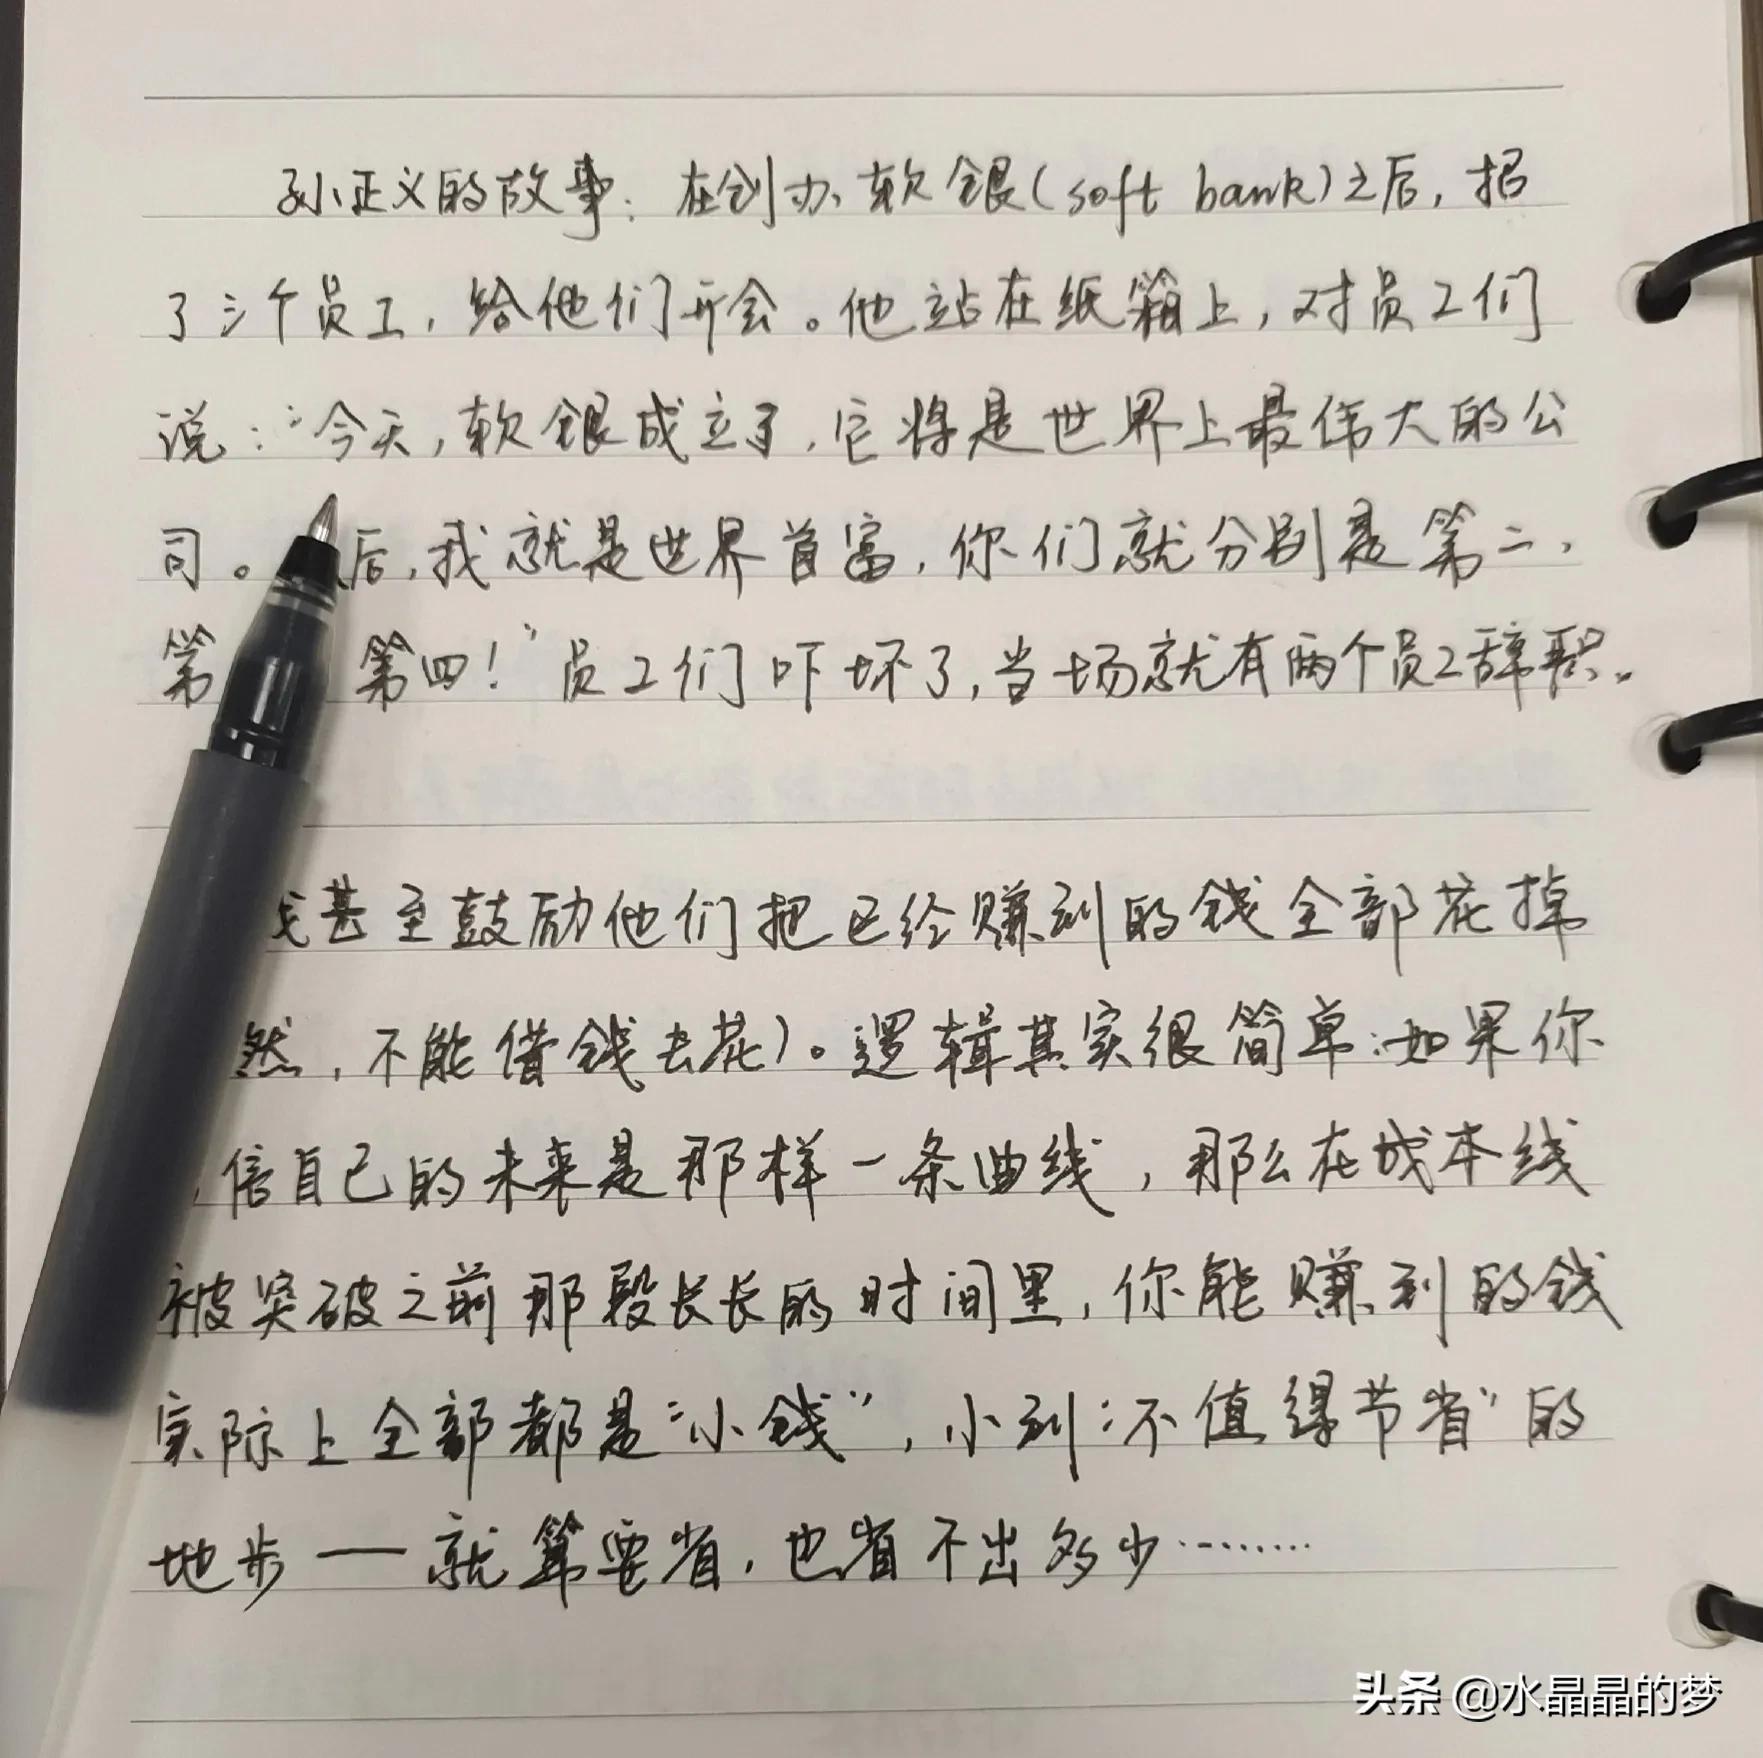 孙正义的故事:在创办软银(soft bank)之后,招
了三个员工,给他们开会。他站在纸箱上,对员工们
说:“今天,软银成立了,它将是世界上最伟大的公
司。后,我就是世界首富,你们就分别是第二,
第 第四!”员工们吓坏了,当场就有两个员工辞职。
我甚至鼓励他们把已经赚到的钱全部花掉
然,不能借钱去花)。逻辑其实很简单:如果你
信自己的未来是那样一条曲线,那么在成本线
被突破之前那段长长的时间里,你能赚到的钱
实际上全部都是“小钱”,小到“不值得节省”的
地步——就算要省,也省不出多少………
头条 @水晶晶的梦